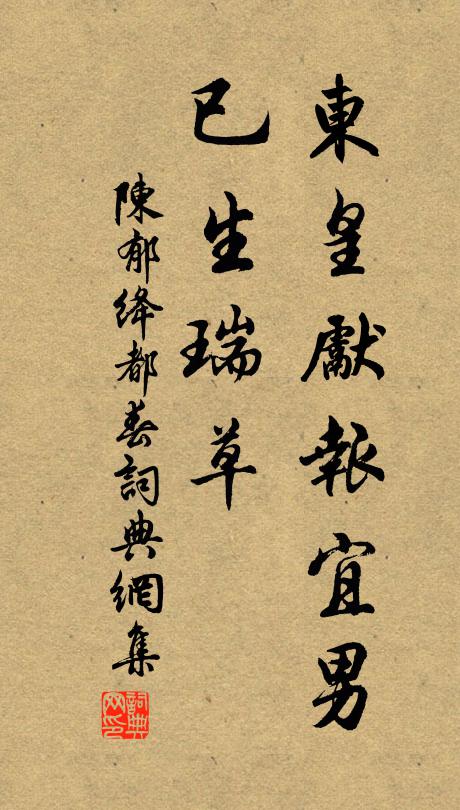 東皇獻報宜男
已生瑞草
陳郁絳都春詞典網集
詞典网印